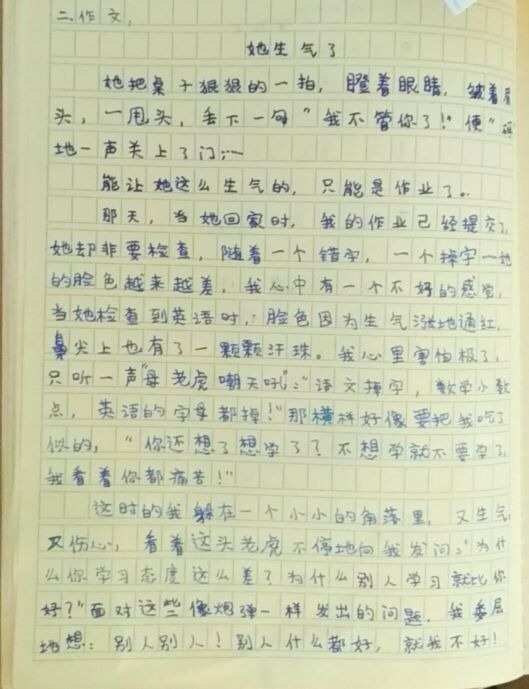 二、作文。
她生气了
她把桌子狠狠的一拍，瞪着眼睛，皱着眉
头，一甩头，丢下一句“我不管你了！”便“砰”
地一声关上了门……
能让她这么生气的，只能是作业了。
那天，当她回家时，我的作业已经提交了，
她却非要检查，随着一个错字，一个掉字……她
的脸色越来越差，我心中有一个不好的感觉，
当她检查到英语时，脸色因为生气涨地通红，
鼻尖上也有了一颗颗汗珠。我心里害怕极了，
只听一声“母老虎嘲天吼”：“语文掉字，数学小数
点，英语的字母都掉！”那横样好像要把我吃了
似的，“你还想了想学了？不想学就不要学了，
我看着你都痛苦！”
这时的我躲在一个小小的角落里，又生气，
又伤心，看着这头老虎不停地向我发问：“为什
么你学习态度这么差？为什么别人学习就比你
好？”面对这些像炮弹一样发出的问题，我委屈
地想：别人别人！别人什么都好，就我不好！